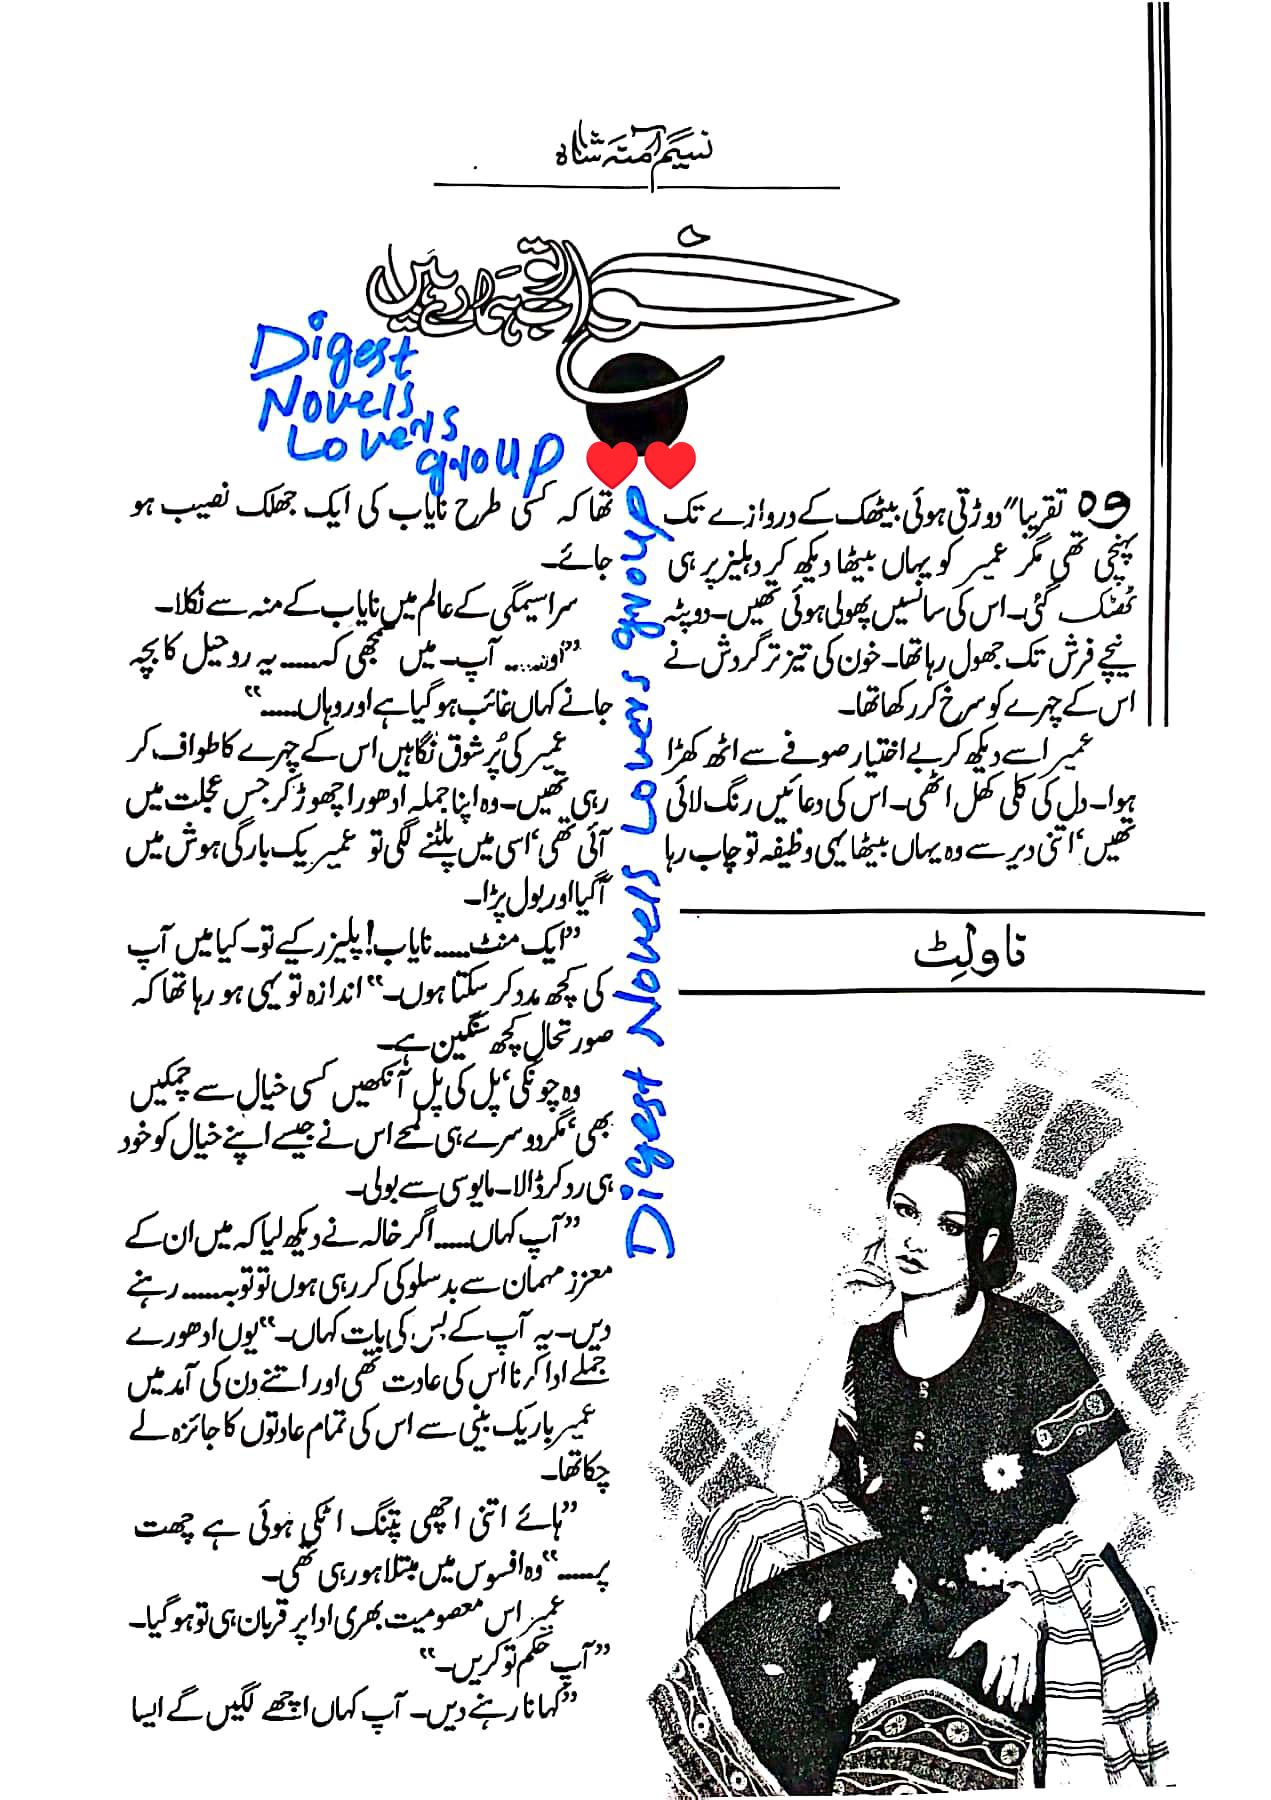 نسیم آمنہ شاہ
خواب تو ہمارے ہیں
Digest
Novels
Lovers
group
وہ تقریباً دوڑتی ہوئی بیٹھک کے دروازے تک
پہنچی تھی مگر عمیر کو یہاں بیٹھا دیکھ کر دہلیز پر ہی
ٹھٹک گئی۔ اس کی سانسیں پھولی ہوئی تھیں۔ دوپٹہ
نیچے فرش تک جھول رہا تھا۔ خون کی تیز تر گردش نے
اس کے چہرے کو سرخ کر رکھا تھا۔
عمیر اسے دیکھ کر بے اختیار صوفے سے اٹھ کھڑا
ہوا۔ دل کی کلی کھل اٹھی۔ اس کی دعائیں رنگ لائی
تھیں، اتنی دیر سے وہ یہاں بیٹھا یہی وظیفہ تو چاب رہا
ناولٹ
Digest Novels Lovers group
تھا کہ کسی طرح نایاب کی ایک جھلک نصیب ہو
جائے۔
سراسیمگی کے عالم میں نایاب کے منہ سے نکلا۔
”اونہہ.... آپ۔ میں سمجھی کہ..... یہ روحیل کا بچہ
جانے کہاں غائب ہو گیا ہے اور وہاں.....“
عمیر کی پُرشوق نگاہیں اس کے چہرے کا طواف کر
رہی تھیں۔ وہ اپنا جملہ ادھورا چھوڑ کر جس عجلت میں
آئی تھی، اسی میں پلٹنے لگی تو عمیر یک بارگی ہوش میں
آ گیا اور بول پڑا۔
”ایک منٹ..... نایاب! پلیز رکیے تو۔ کیا میں آپ
کی کچھ مدد کر سکتا ہوں۔“ اندازہ تو یہی ہو رہا تھا کہ
صورتحال کچھ سنگین ہے۔
وہ چونکی، پل کی پل آنکھیں کسی خیال سے چمکیں
بھی، مگر دوسرے ہی لمحے اس نے جیسے اپنے خیال کو خود
ہی رد کر ڈالا۔ مایوسی سے بولی۔
”آپ کہاں..... اگر خالہ نے دیکھ لیا کہ میں ان کے
معزز مہمان سے بدسلوکی کر رہی ہوں تو توبہ...... رہنے
دیں۔ یہ آپ کے بس کی بات کہاں۔“ یوں ادھورے
جملے ادا کرنا اس کی عادت تھی اور اتنے دن کی آمد میں
عمیر باریک بینی سے اس کی تمام عادتوں کا جائزہ لے
چکا تھا۔
”ہائے اتنی اچھی پتنگ اٹکی ہوئی ہے چھت
پر.....“ وہ افسوس میں مبتلا ہو رہی تھی۔
عمیر اس معصومیت بھری ادا پر قربان ہی تو ہو گیا۔
”آپ حکم تو کریں۔“
”کہا نا رہنے دیں۔ آپ کہاں اچھے لگیں گے ایسا